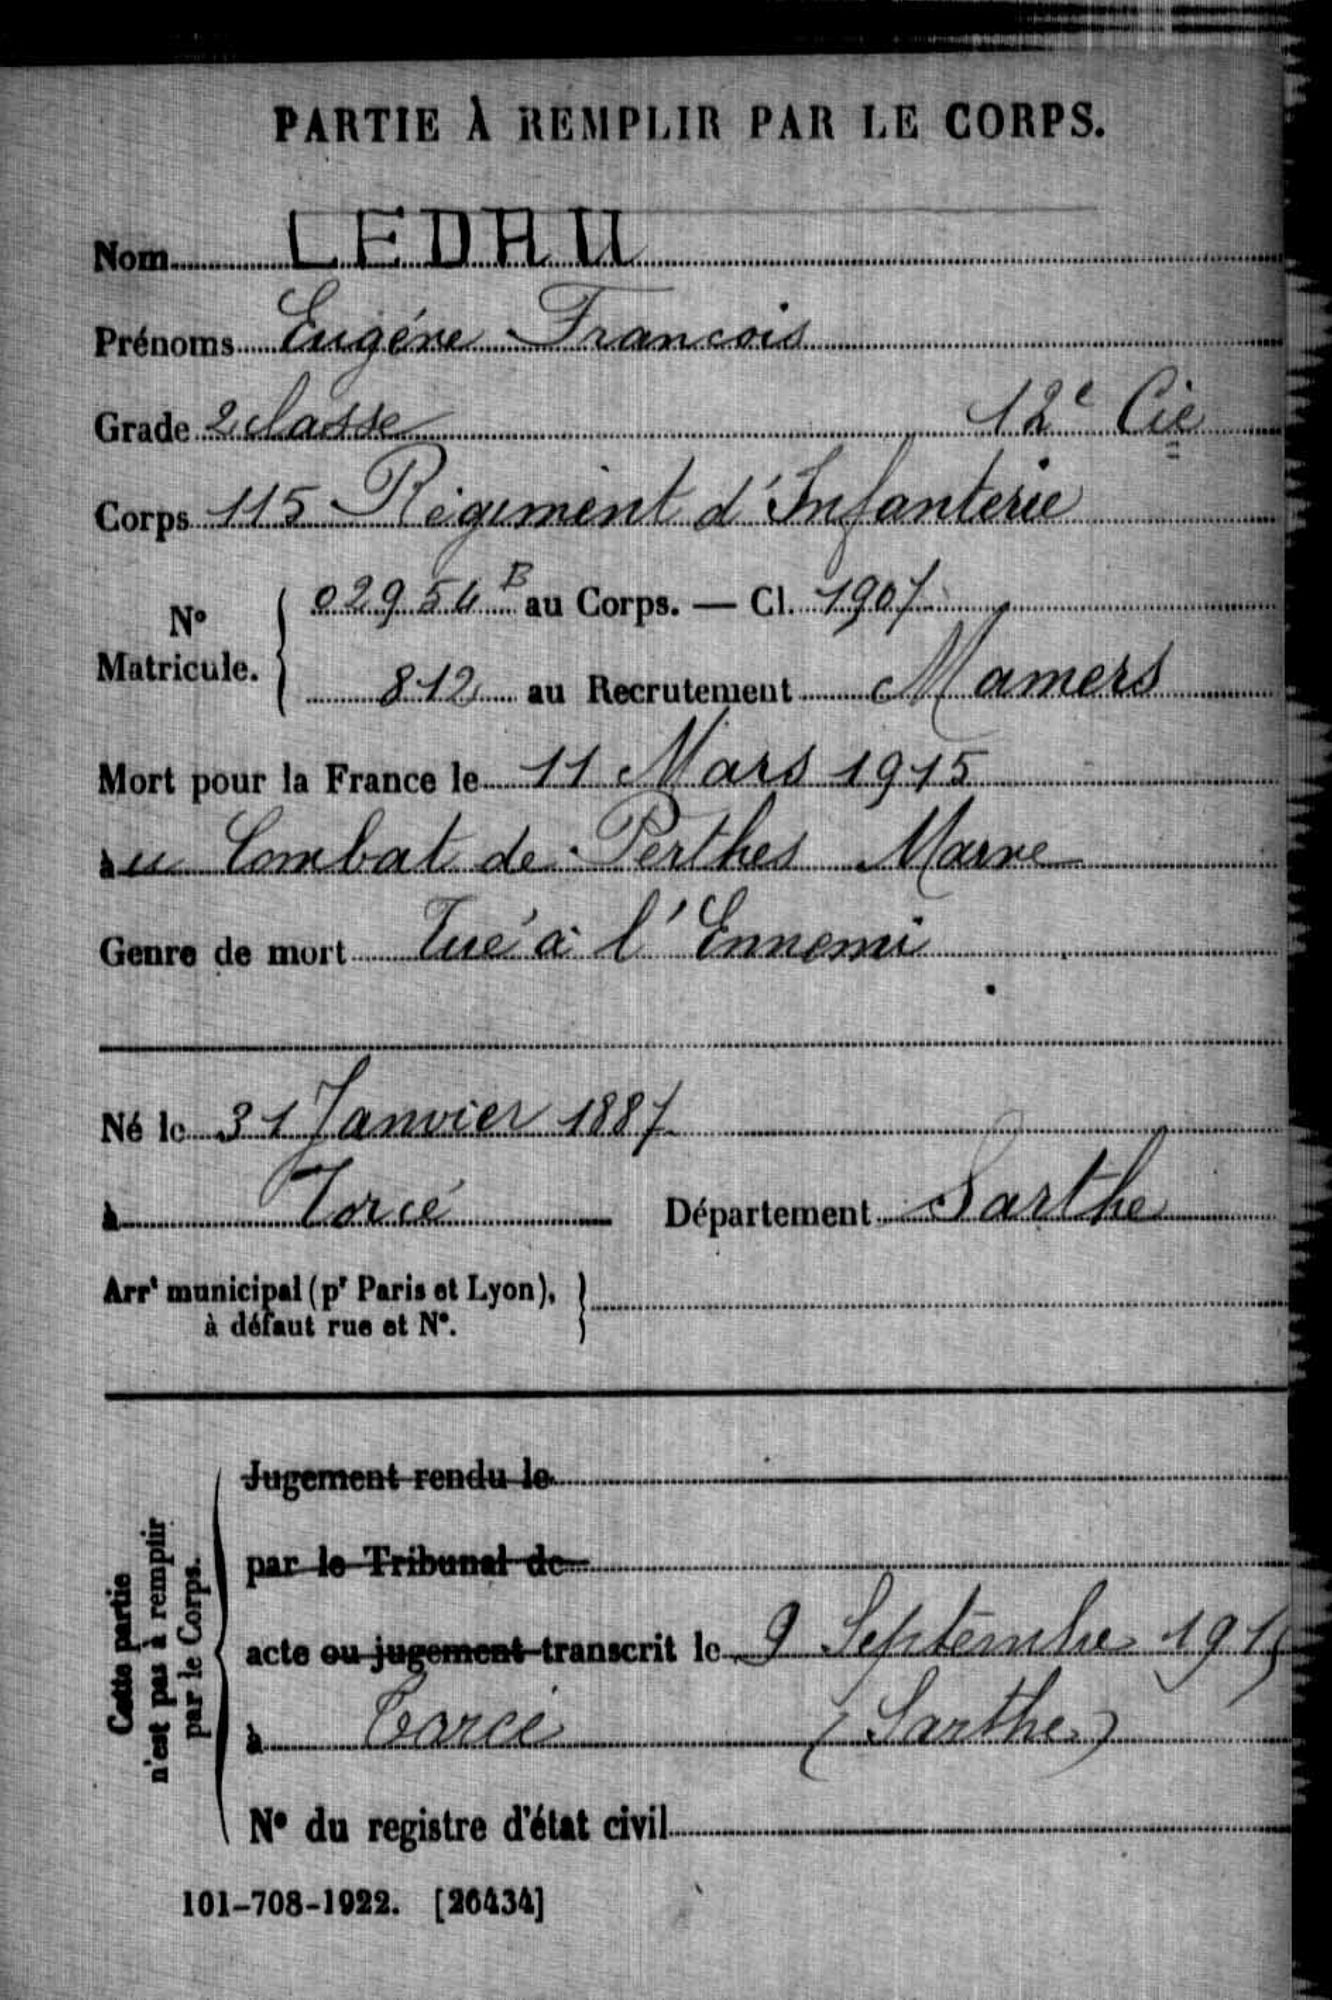 PARTIE À REMPLIR PAR LE CORPS.
Nom LEDRU
Prénoms Eugéne François
Grade 2 classe 12e Cie
Corps 115 Régiment d'Infanterie
No Matricule. 02954 B au Corps. — Cl. 1907
812 au Recrutement Mamers
Mort pour la France le 11 Mars 1915
au Combat de Perthes Marne
Genre de mort Tué à l'Ennemi
Né le 31 Janvier 1887
à Torcé Département Sarthe
Arrt municipal (pr Paris et Lyon),
à défaut rue et No.
Cette partie
n'est pas à remplir
par le Corps.
Jugement rendu le
par le Tribunal de
acte ou jugement transcrit le 9 Septembre 1915
à Torcé (Sarthe)
No du registre d'état civil
101-708-1922. [26434]